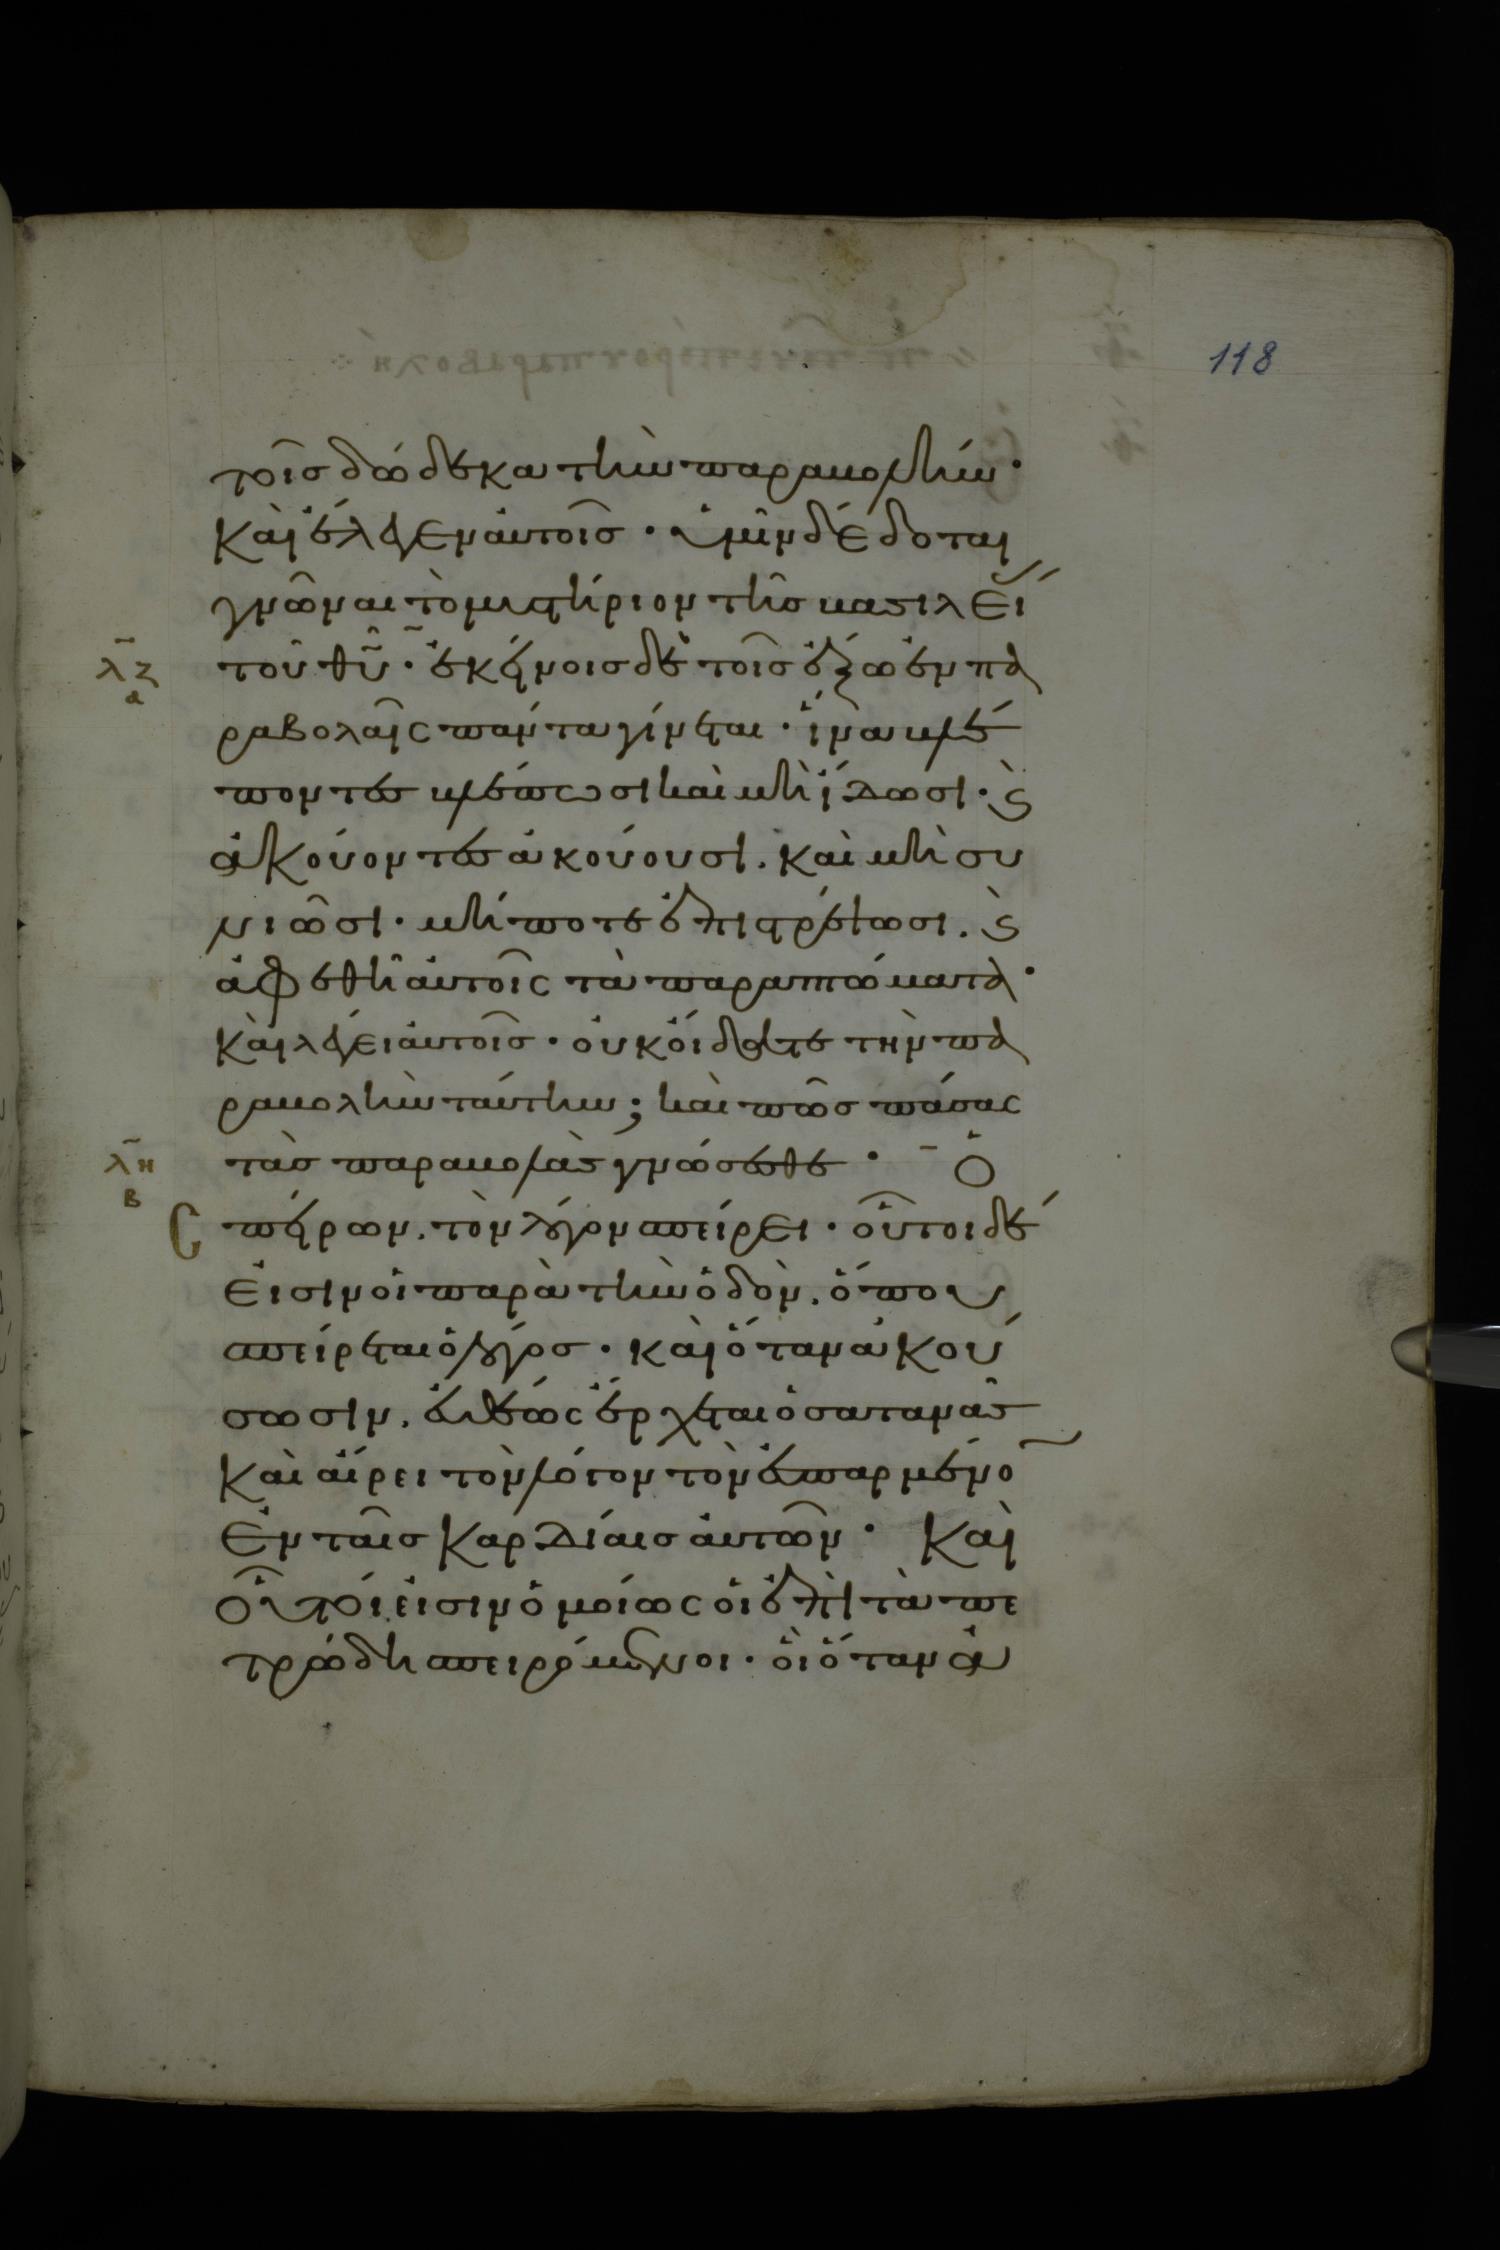 118
τοῖς δώδεκα τὴν παραβολήν·
Καὶ ἔλεγεν αὐτοῖς· ὑμῖν δέδοται
γνῶναι τὸ μυστήριον τῆς βασιλεί
τοῦ θῦ· ἐκείνοις δὲ τοῖς ἔξω ἐν πα
λζ
α
ραβολαῖς πάντα γίνεται· ἵνα βλέ
ποντες βλέπωσι καὶ μὴ ἴδωσι· ϗ
ἀκούοντες ἀκούουσι. καὶ μὴ συ
νιῶσι· μήποτε ἐπιστρέψωσι. ϗ
ἀφεθῆ αὐτοῖς τὰ παραπτώματα·
Καὶ λέγει αὐτοῖς· οὐκ οἴδατε τὴν πα
ραβολὴν ταύτην; καὶ πῶς πάσας
τὰς παραβολὰς γνώσεσθε· Ὁ
λη
β
σπείρων. τὸν λόγον σπείρει· οὗτοι δέ
εἰσιν οἱ παρὰ τὴν ὁδὸν. ὅπου
σπείρεται ὁ λόγος· καὶ ὅταν ἀκού
σωσιν. εὐθέως ἔρχεται ὁ σατανᾶς
καὶ αἴρει τὸν λόγον τὸν ἐσπαρμένο
ἐν ταῖς καρδίαις αὐτῶν· Καὶ
οὗτοί εἰσιν ὁμοίως οἱ ἐπὶ τὰ πε
τρώδη σπειρόμενοι· οἳ ὅταν ἀ